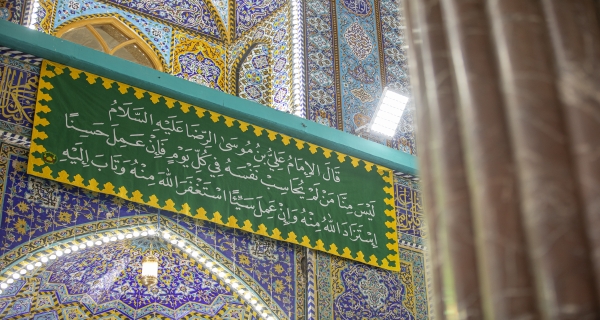 قَالَ الإِمَامُ عَلِيُّ بْنُ مُوسَى الرِّضَا عَلَيْهِ السَّلَامُ
لَيْسَ مِنَّا مَنْ لَمْ يُحَاسِبْ نَفْسَهُ فِي كُلِّ يَوْمٍ فَإِنْ عَمِلَ حَسَنًا
إِسْتَزَادَ اللهَ مِنْهُ وَإِنْ عَمِلَ سَيِّئًا اسْتَغْفَرَ اللهَ مِنْهُ وَتَابَ إِلَيْهِ